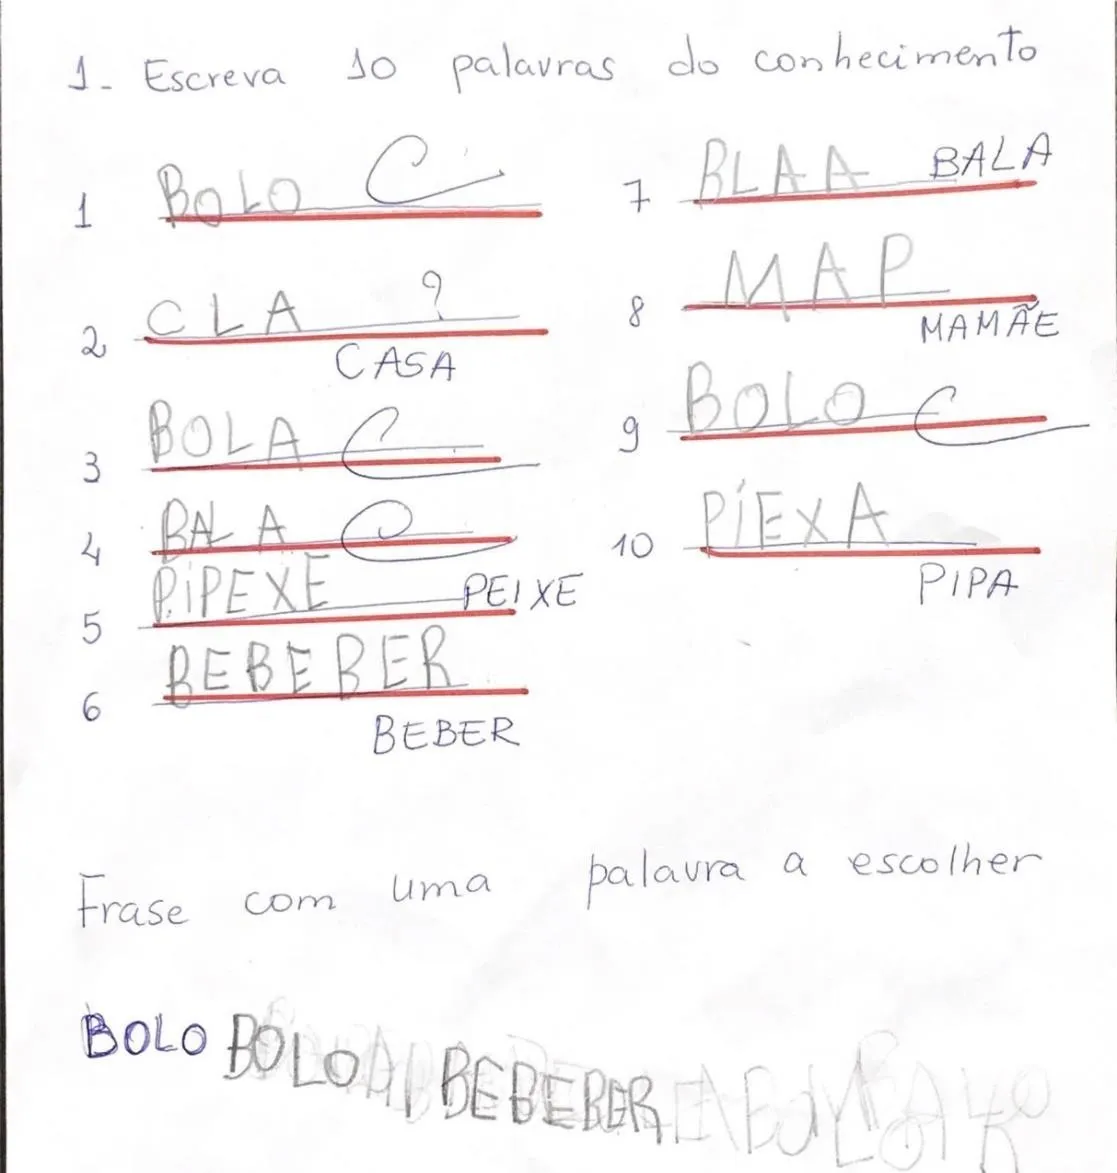 1- Escreva 10 palavras do conhecimento
1 BOLO C
2 CLA ?
CASA
3 BOLA C
4 BALA C
5 PIPEXE PEIXE
6 BEBEBER
BEBER
7 BLAA BALA
8 MAP
MAMÃE
9 BOLO C
10 PÍEXA
PIPA
Frase com uma palavra a escolher
BOLO BOLO BEBEBER